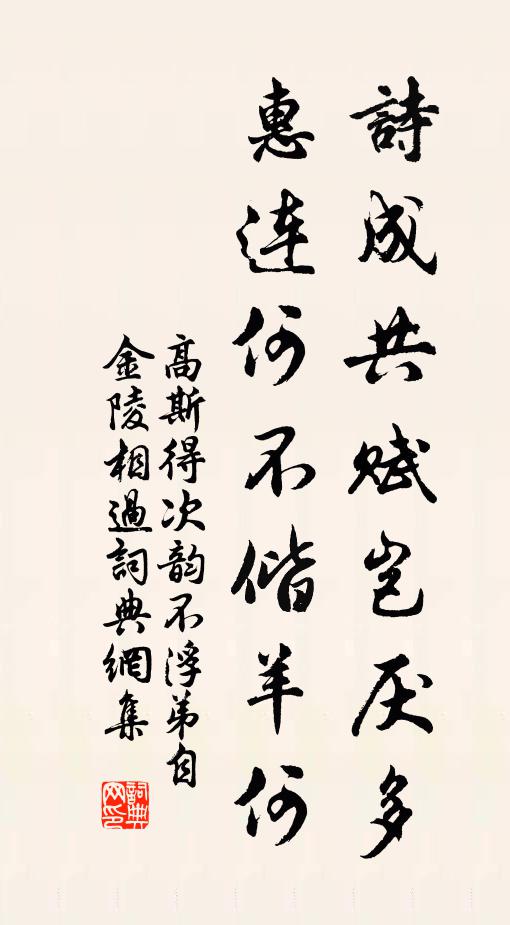 詩成共赋岂厌多
惠连何不偕羊何
高斯得次韵不浮弟自
金陵相過詞典網集
詞典网印